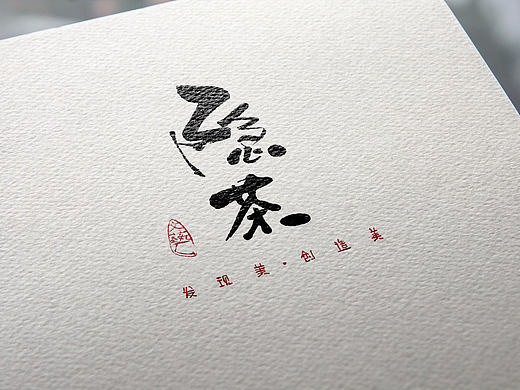 隐
茶
发现美·创造美